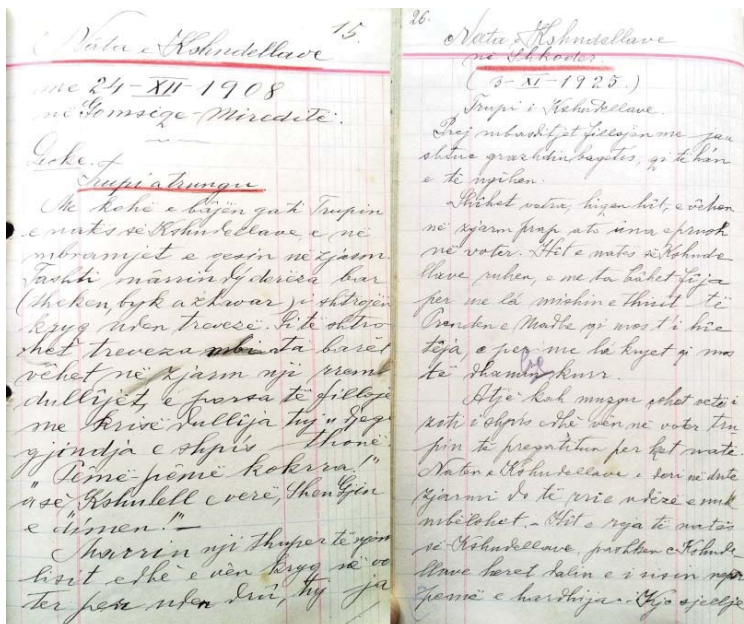 15.
Nata e Kshndellave
me 24-XII-1908
në Gomsiqe-Mireditë.
Geke.
Trupi a trungu
Me kohë e bâjën gati Trupin
e natës së Kshndellave, e në
mbramjet e qesin në zjarm.
Tashti màrrin dy dorëza bar
(theken, byk a zhavar) i shtrojën
kryq nden trevezë. Si të shtro
het treveza mbi ta barët
vêhet në zjarm nji rremb
dullîjet, e parsa të filloje
me krisë dullîja tuj u djegë
gjindja e shpis thonë:
"Pëmë-pëmë kokrra!"
ase "Kshnlell e verë, Shen Gjin
e dimen!"-
Marrin nji thuper të njomë
lisit edhè e vên kryq në vo
ter per nden drû, tuj ja
26.
Nata e Kshndellave
në Shkoder.
(3-XI-1925.)
Trupi i Kshndellave.
Prej mbasditjet fillojën me jau
shtue grazhdin bagetis, qi të hàn
e të ngihen.
Shihet votra, higen hît, e vêhen
në zjarm prap ato una e prush
në voter. Hît e natës së Kshnde
llave ruhen, e me ta bâhet fîja
per me la mishin e thiut të
Prenden e Madhe qi mos t'i hîe
têja, e per me la kryet qi mos
të dhamin kurr.
Atjè kah muzgu çohet
zoti i shpis edhè vên në voter tru
pin të pregatitun per ket natë.
Naten e Kshndellave e deri në dritë
zjarmi do të rrie ndezë e nuk
mbëlohet.- Hît e reja të natës
së Kshndellave, pashken e Kshnde
llave heret dalin e i sisin neper
pemë e hardhija.- Kjo sjellje